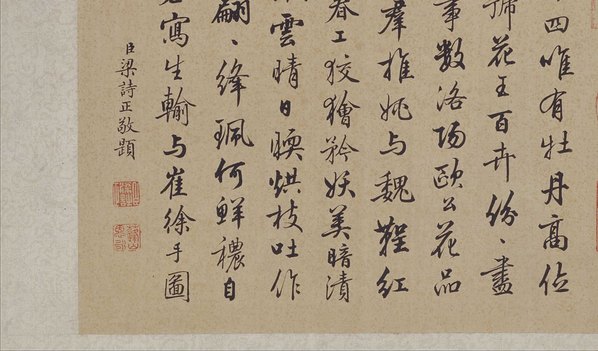 四唯有牡丹高位
號花王百卉紛〻盡
事數洛陽歐公花品
羣推姚与魏鞓紅
春工狡獪矜妖美暗漬
雲晴日暖烘枝吐作
翩〻絳珮何鮮穠自
寫生輸与崔徐手圖
臣梁詩正敬題